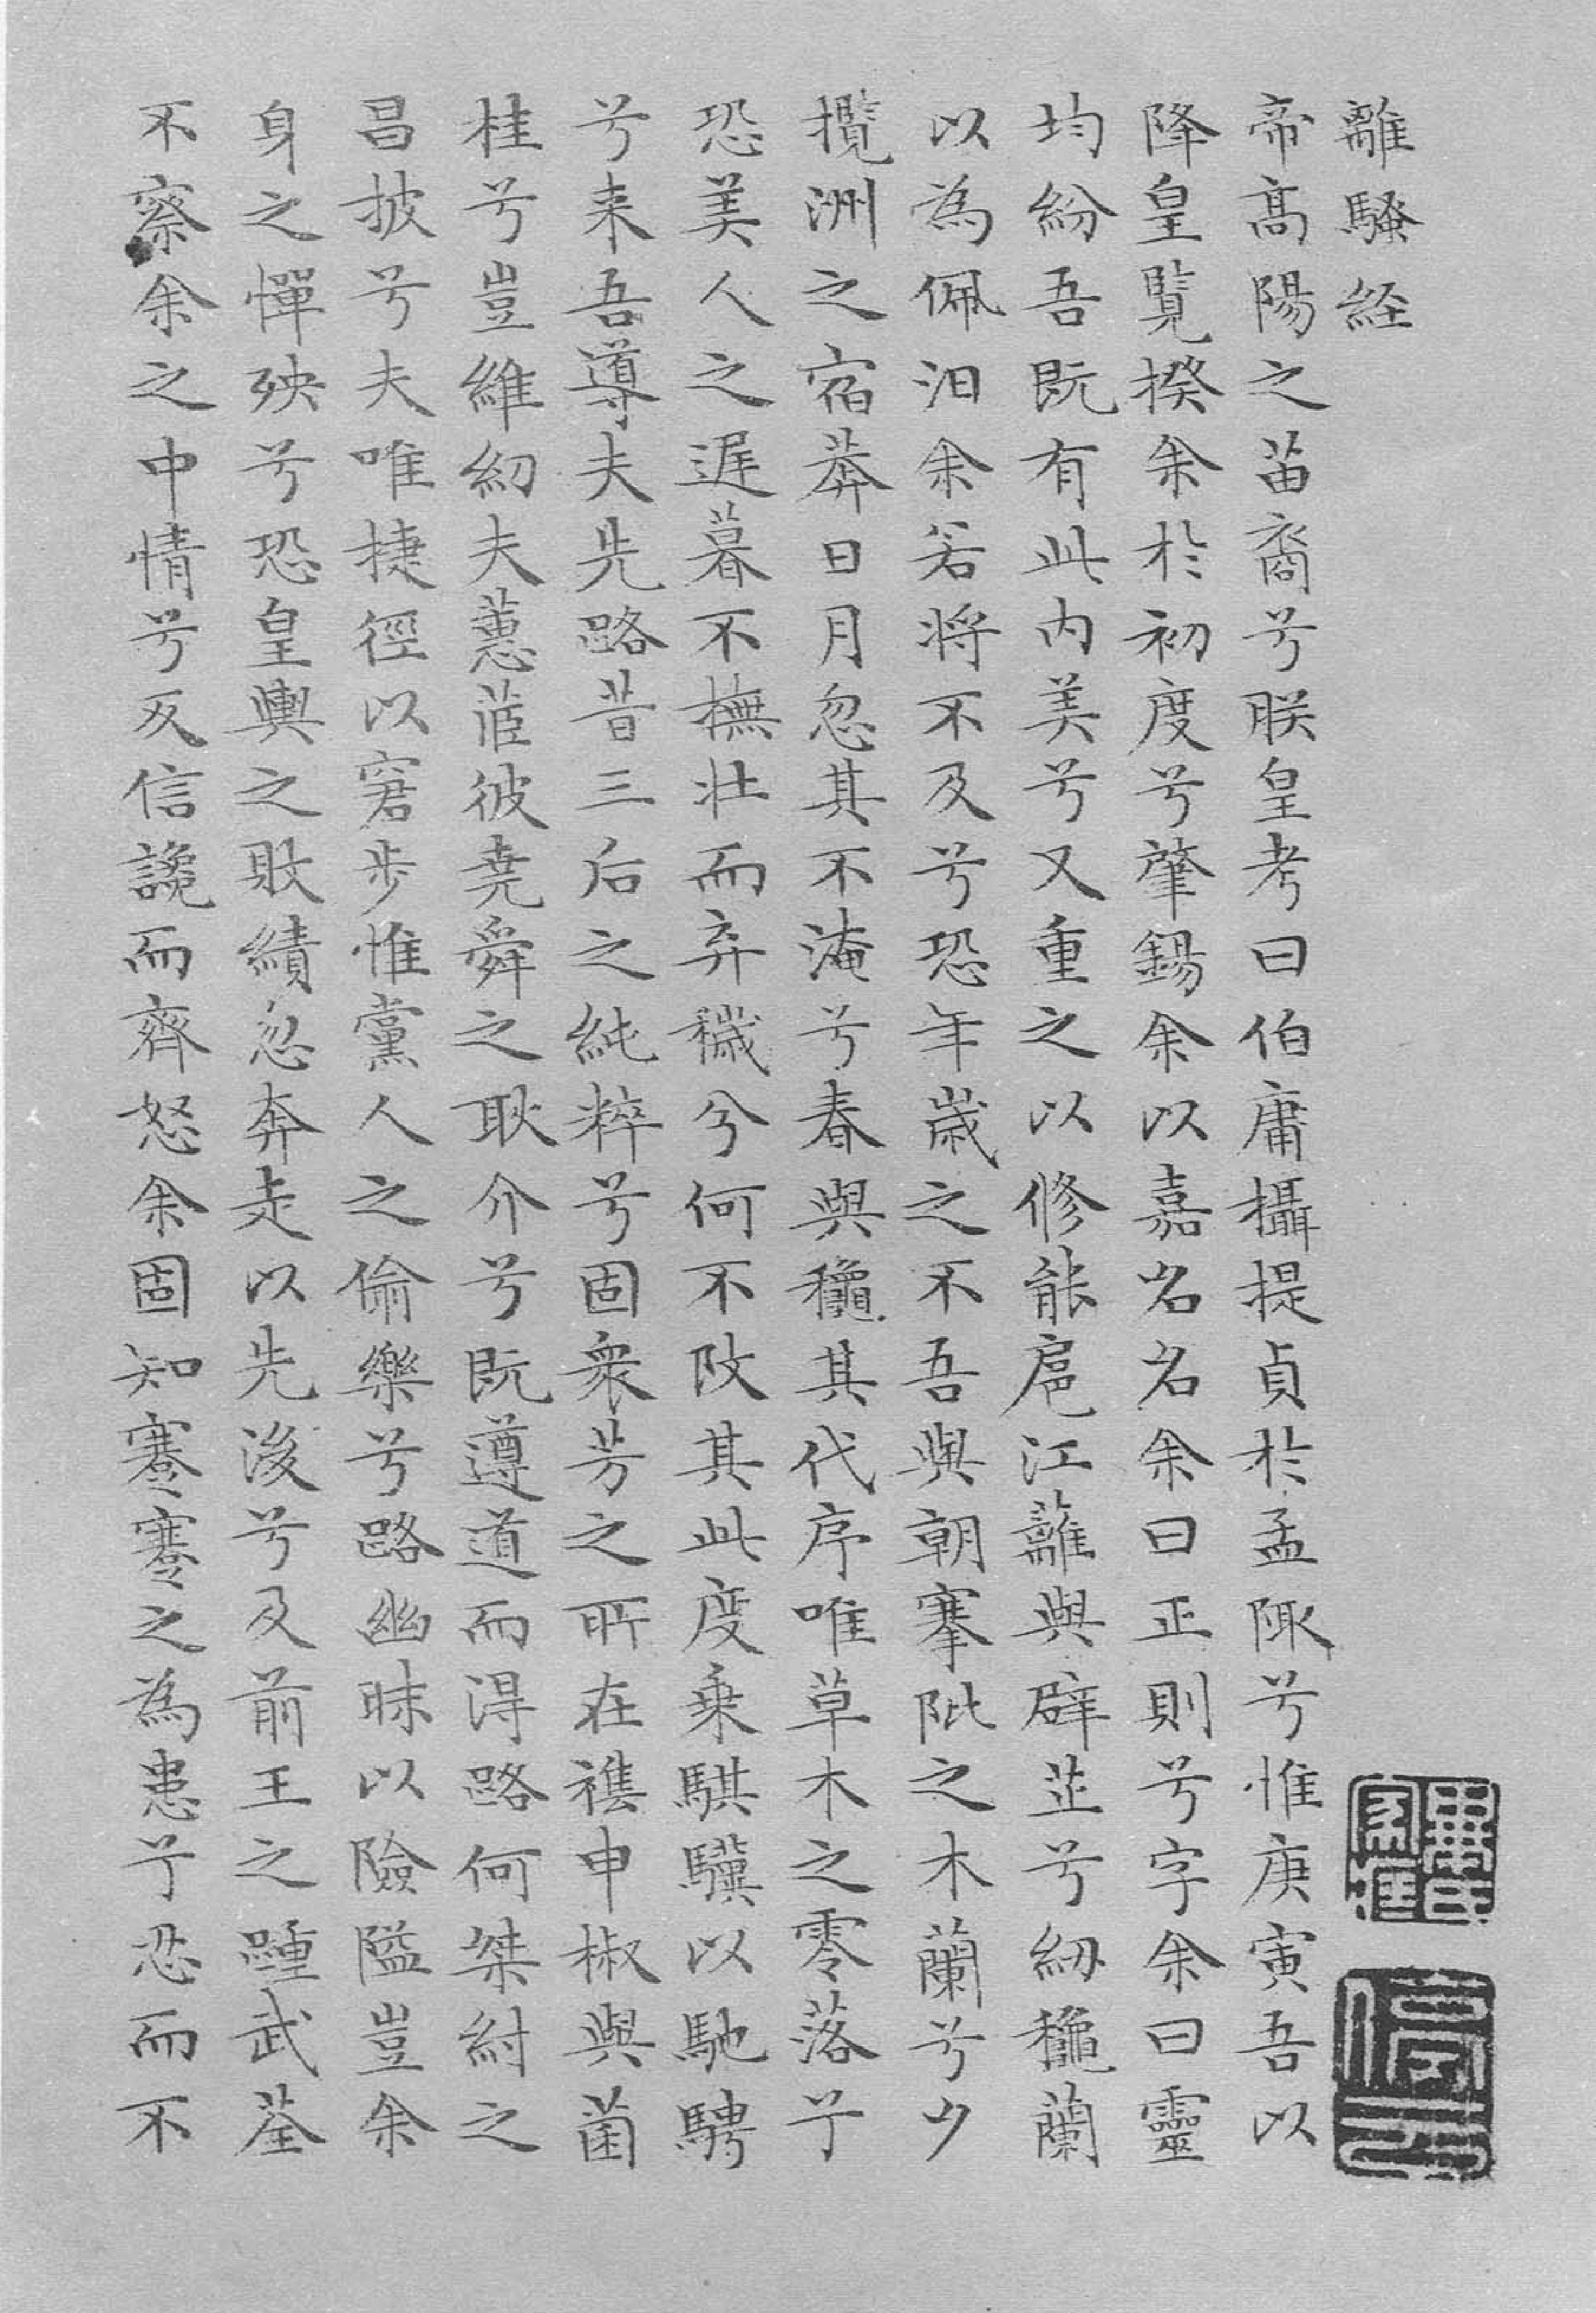 離騷経
帝髙陽之苖裔兮朕皇考曰伯庸攝提貞於孟陬兮惟庚寅吾以
降皇覧揆余於初度兮肈錫余以嘉名名余曰正則兮字余曰靈
均紛吾既有此内美兮又重之以修能扈江蘺與辟芷兮紉龝蘭
以為佩汩余若将不及兮恐年歳之不吾與朝搴阰之木蘭兮夕
攬洲之宿莽日月忽其不淹兮春與龝其代序唯草木之零落兮
恐美人之遲暮不撫壯而弃穢兮何不改其此度乗騏驥以馳騁
兮来吾導夫先路昔三后之純粹兮固衆芳之所在襍申椒與菌
桂兮豈維紉夫蕙茝彼尭舜之耿介兮既遵道而得路何桀紂之
昌披兮夫唯捷徑以窘步惟黨人之偷樂兮路幽昧以險隘豈余
身之憚殃兮恐皇輿之敗績忽奔走以先後兮及前王之踵武荃
不察余之中情兮反信讒而齊怒余固知謇謇之為患兮忍而不